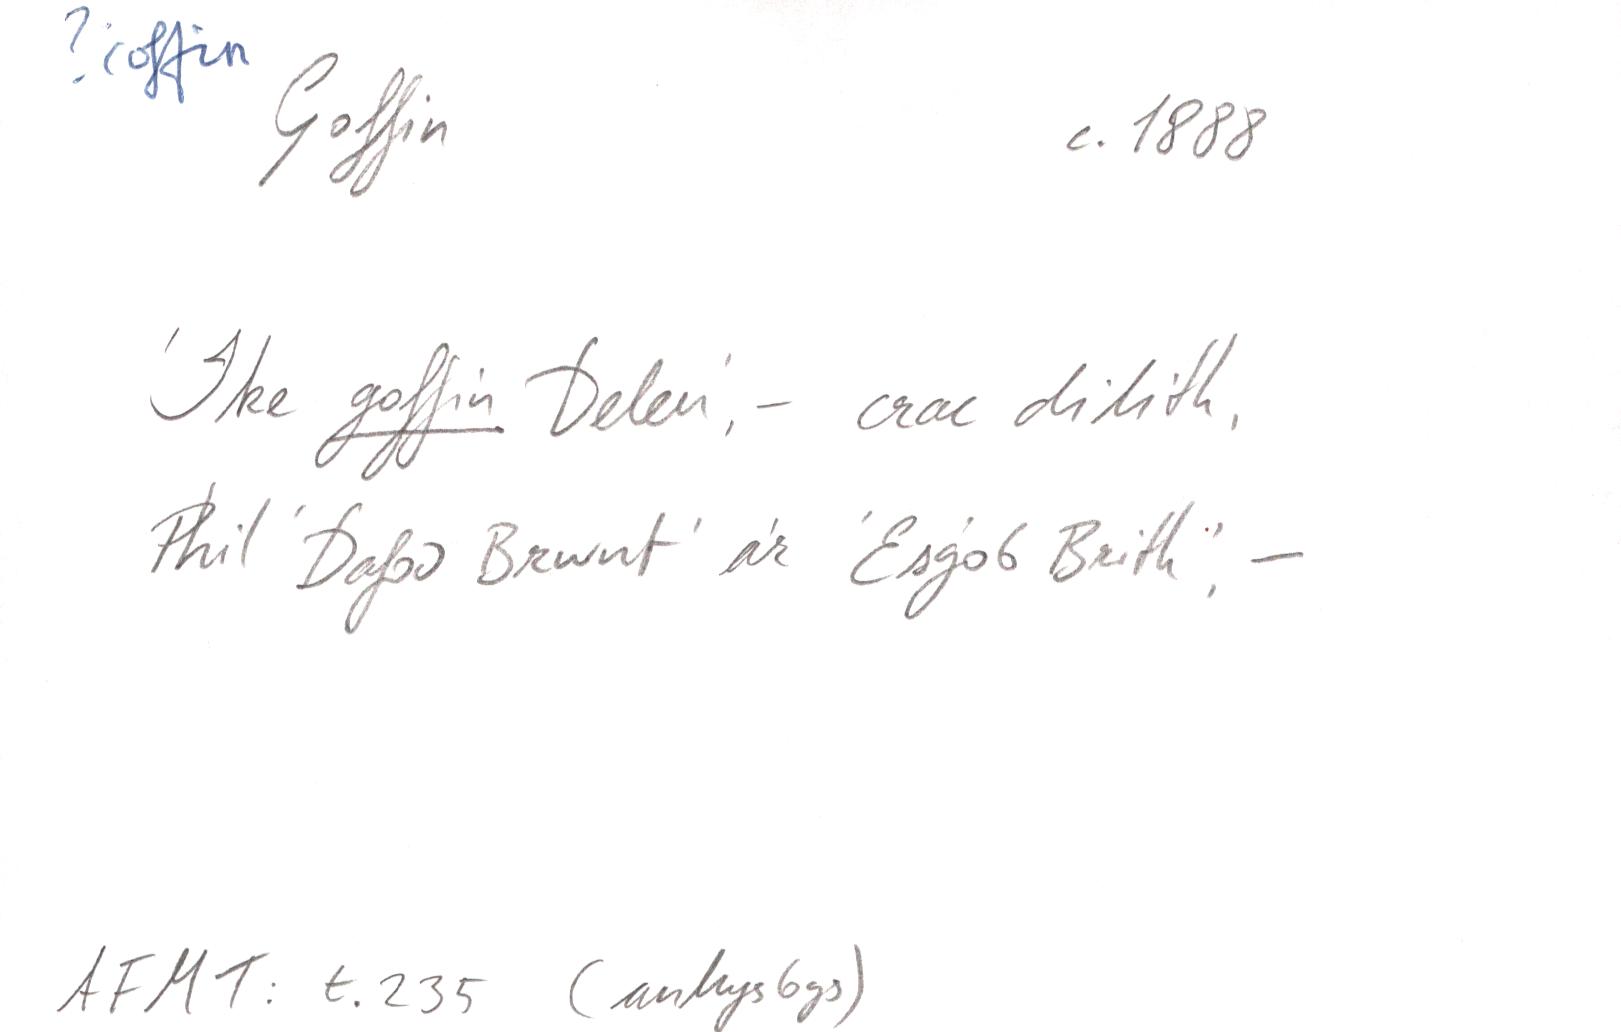 ?coffin
Goffin c. 1888
'Ike goffin Delen',– crac dilith,
Phil 'Dafod Brwnt' a'r 'Esgob Brith',–
AFMT: t.235 (anhysbys)